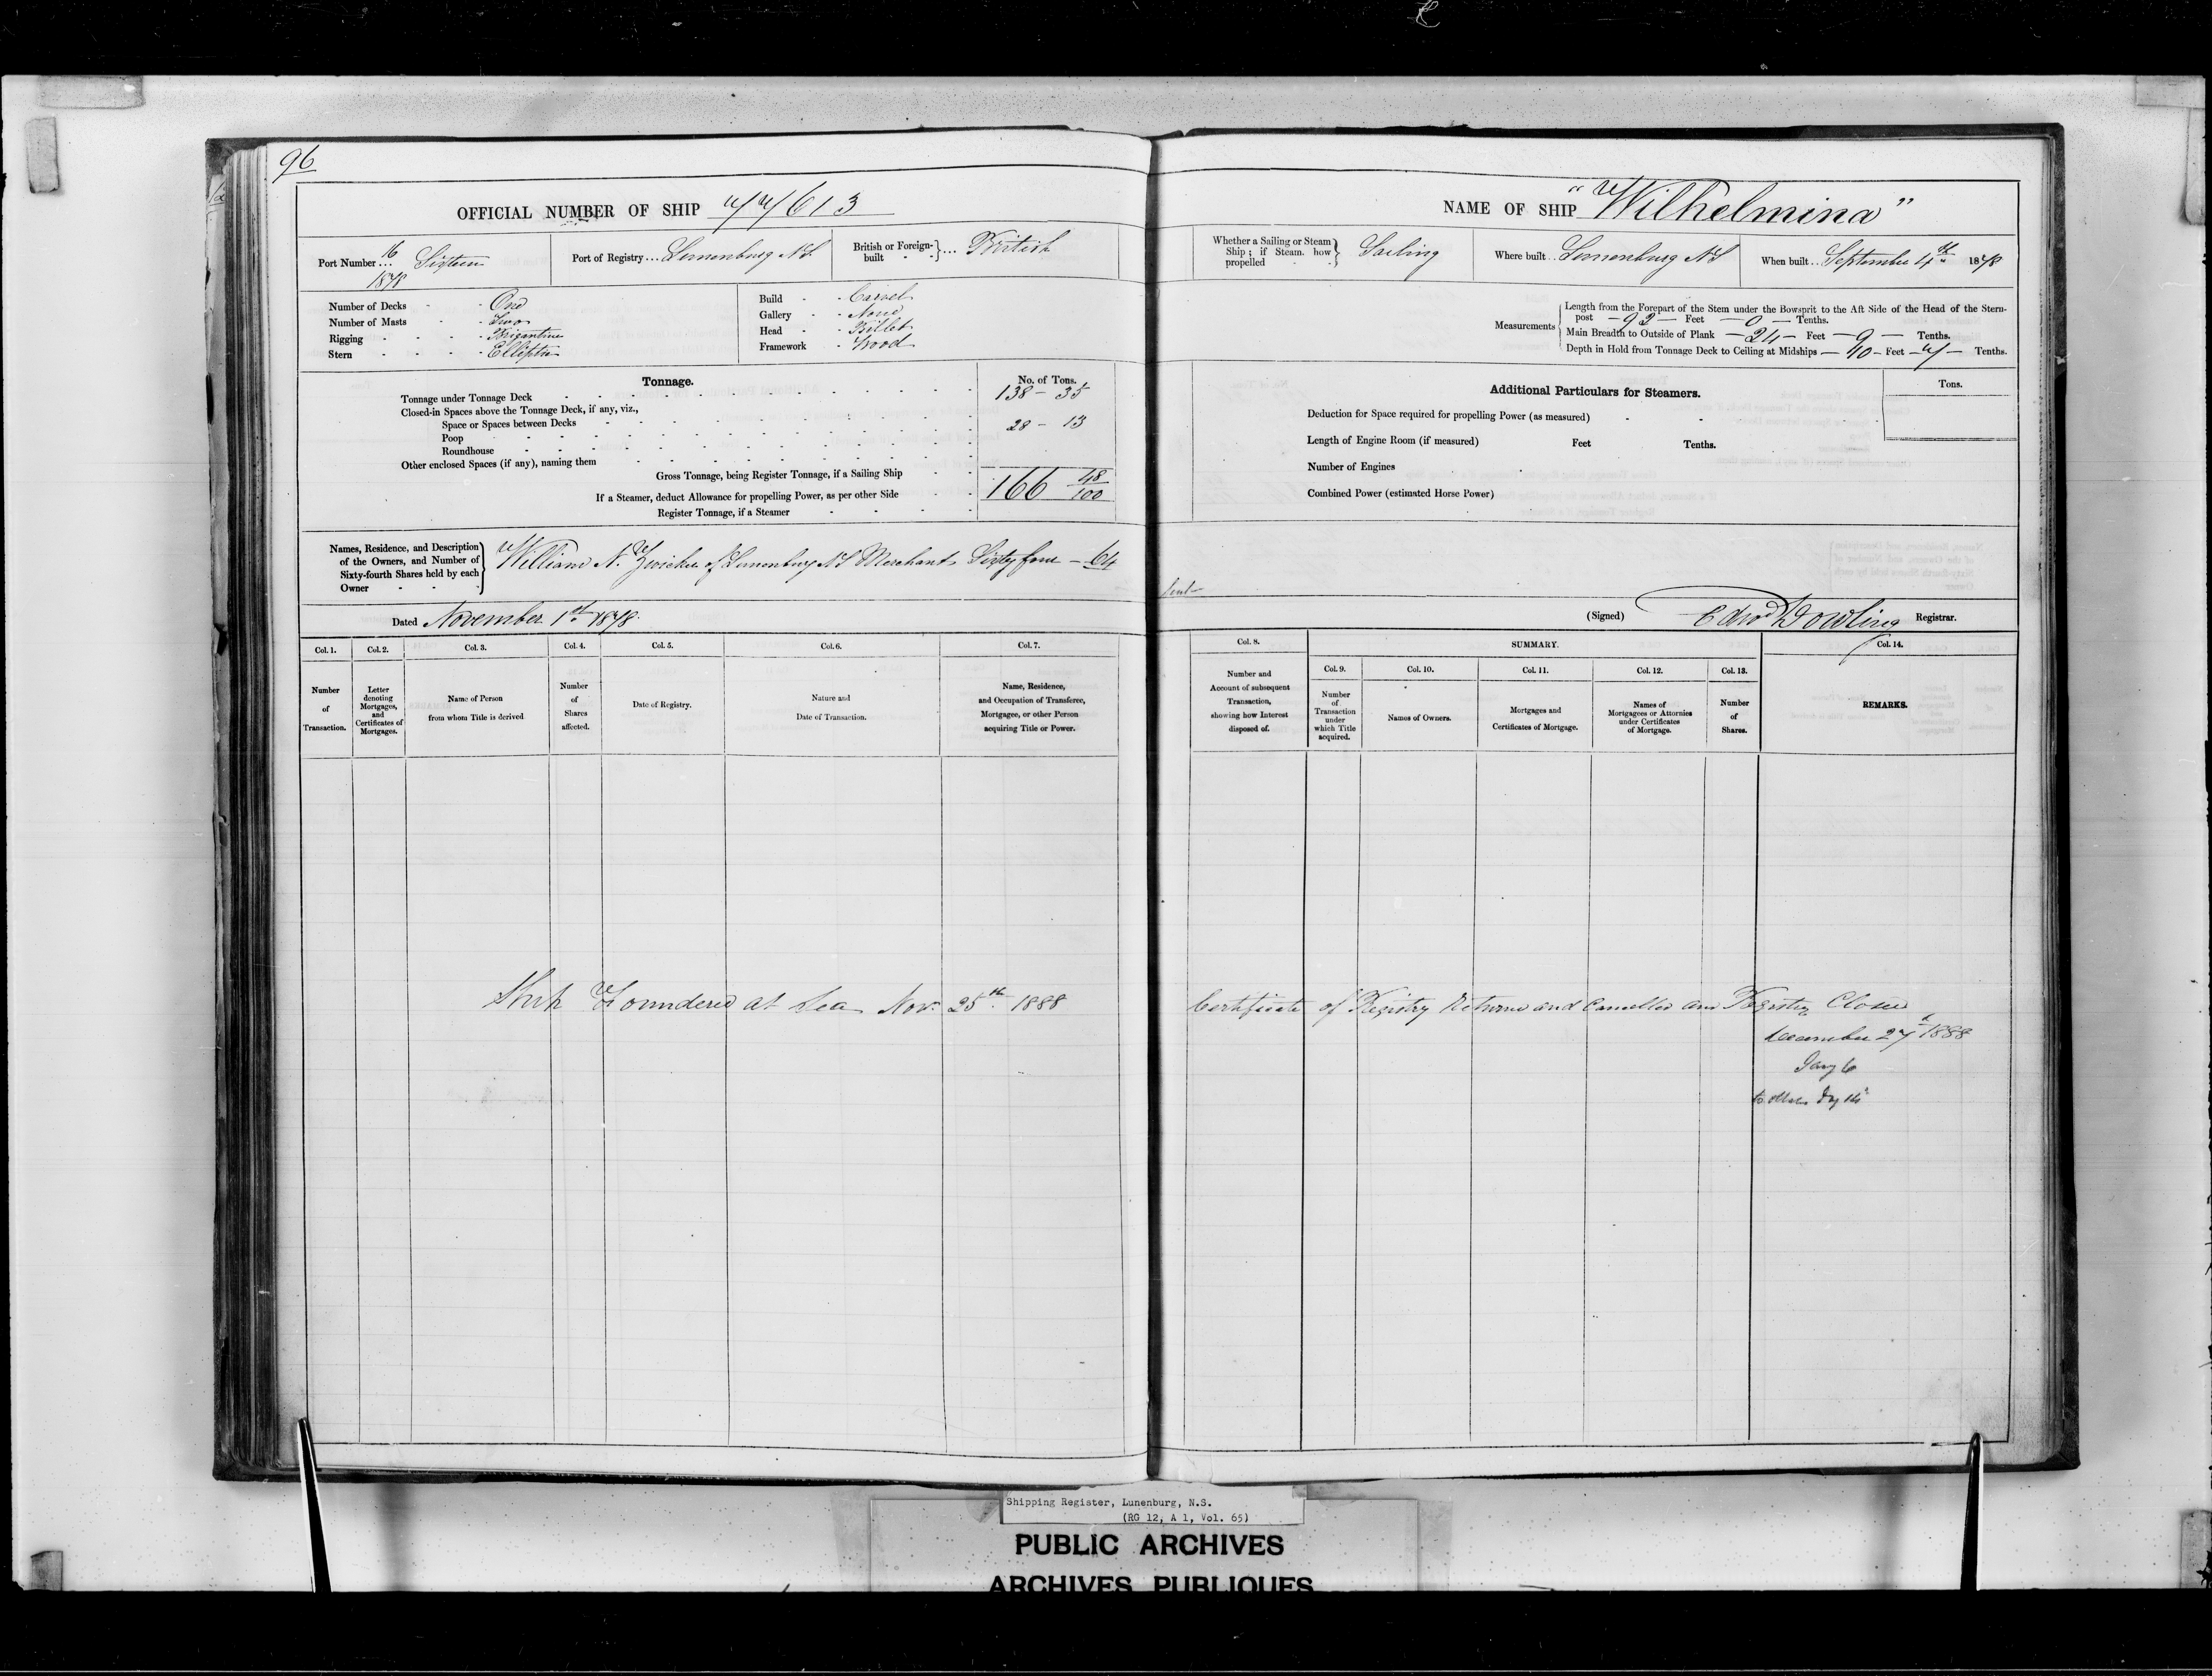 96
OFFICIAL NUMBER OF SHIP 77613
Port Number 16 ... Sixteen
1878
Port of Registry ... Lunenburg N.S.
British or Foreign-built } ... British
Number of Decks - - One
Number of Masts - - Two
Rigging - - - Brigantine
Stern - - - - Elliptic
Build - - Carvel
Gallery - - None
Head - - Billet
Framework - Wood
Tonnage.
No. of Tons.
Tonnage under Tonnage Deck 138 - 35
Closed-in Spaces above the Tonnage Deck, if any, viz.,
Space or Spaces between Decks 28 - 13
Poop
Roundhouse
Other enclosed Spaces (if any), naming them
Gross Tonnage, being Register Tonnage, if a Sailing Ship 166 48/100
If a Steamer, deduct Allowance for propelling Power, as per other Side
Register Tonnage, if a Steamer
Names, Residence, and Description
of the Owners, and Number of
Sixty-fourth Shares held by each
Owner
William N. Zwicker of Lunenburg N S Merchant Sixty four - 64
Dated November 1st 1878.
Col. 1. Number of Transaction.
Col. 2. Letter denoting Mortgages, and Certificates of Mortgages.
Col. 3. Name of Person from whom Title is derived
Col. 4. Number of Shares affected.
Col. 5. Date of Registry.
Col. 6. Nature and Date of Transaction.
Col. 7. Name, Residence, and Occupation of Transferee, Mortgagee, or other Person acquiring Title or Power.
Ship Foundered at Sea Nov. 25th 1888
NAME OF SHIP "Wilhelmina"
Whether a Sailing or Steam Ship; if Steam. how propelled } Sailing
Where built .. Lunenburg N S
When built .. September 4th 1878
Measurements
Length from the Forepart of the Stem under the Bowsprit to the Aft Side of the Head of the Stern-
post - 92 - Feet - 0 - Tenths.
Main Breadth to Outside of Plank - 24 - Feet - 9 - Tenths.
Depth in Hold from Tonnage Deck to Ceiling at Midships - 10 - Feet - 7 - Tenths.
Additional Particulars for Steamers.
Tons.
Deduction for Space required for propelling Power (as measured)
Length of Engine Room (if measured) Feet Tenths.
Number of Engines
Combined Power (estimated Horse Power)
(Signed) Edwd Dowling Registrar.
Col. 8. Number and Account of subsequent Transaction, showing how Interest disposed of.
SUMMARY.
Col. 9. Number of Transaction under which Title acquired.
Col. 10. Names of Owners.
Col. 11. Mortgages and Certificates of Mortgage.
Col. 12. Names of Mortgagees or Attornies under Certificates of Mortgage.
Col. 13. Number of Shares.
Col. 14. REMARKS.
Certificate of Registry Returned and Cancelled and Register Closed
December 27th 1888
Shipping Register, Lunenburg, N.S.
(RG 12, A 1, Vol. 65)
PUBLIC ARCHIVES
ARCHIVES PUBLIQUES